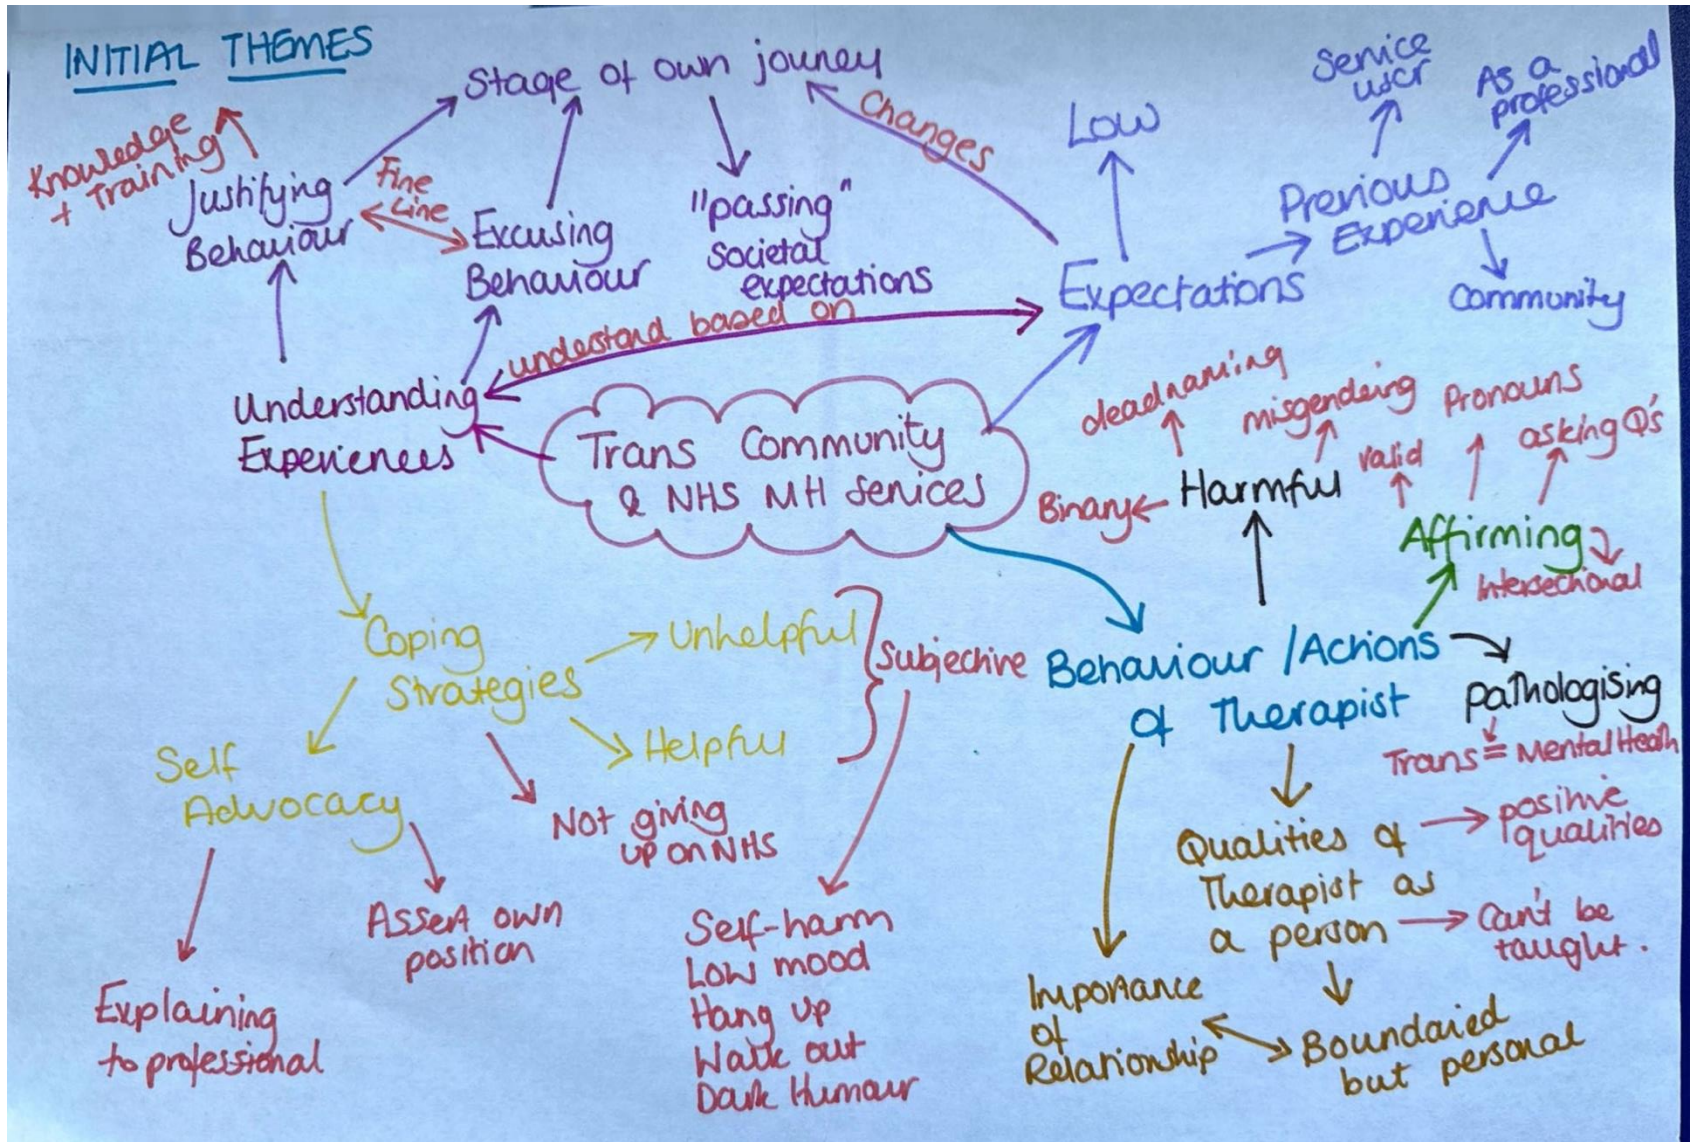 INITIAL THEMES
Stage of own journey
Knowledge
+ Training
Justifying
Behaviour
Fine
Line
Excusing
Behaviour
"passing"
societal
expectations
Changes
Low
Service
user
As a
professional
Previous
Experience
Expectations
Community
understand based on
Understanding
Experiences
Trans Community
& NHS MH Services
deadnaming
misgendering
Binary
Harmful
valid
Pronouns
asking Q's
Affirming
Intersectional
Coping
Strategies
Unhelpful
Helpful
Subjective
Behaviour/Actions
of Therapist
pathologising
Trans = Mental Health
Self
Advocacy
Not giving
up on NHS
Assert own
position
Explaining
to professional
Self-harm
Low mood
Hang up
Walk out
Dark Humour
Qualities of
Therapist as
a person
positive
qualities
Can't be
taught.
Importance
of
Relationship
Boundaried
but personal